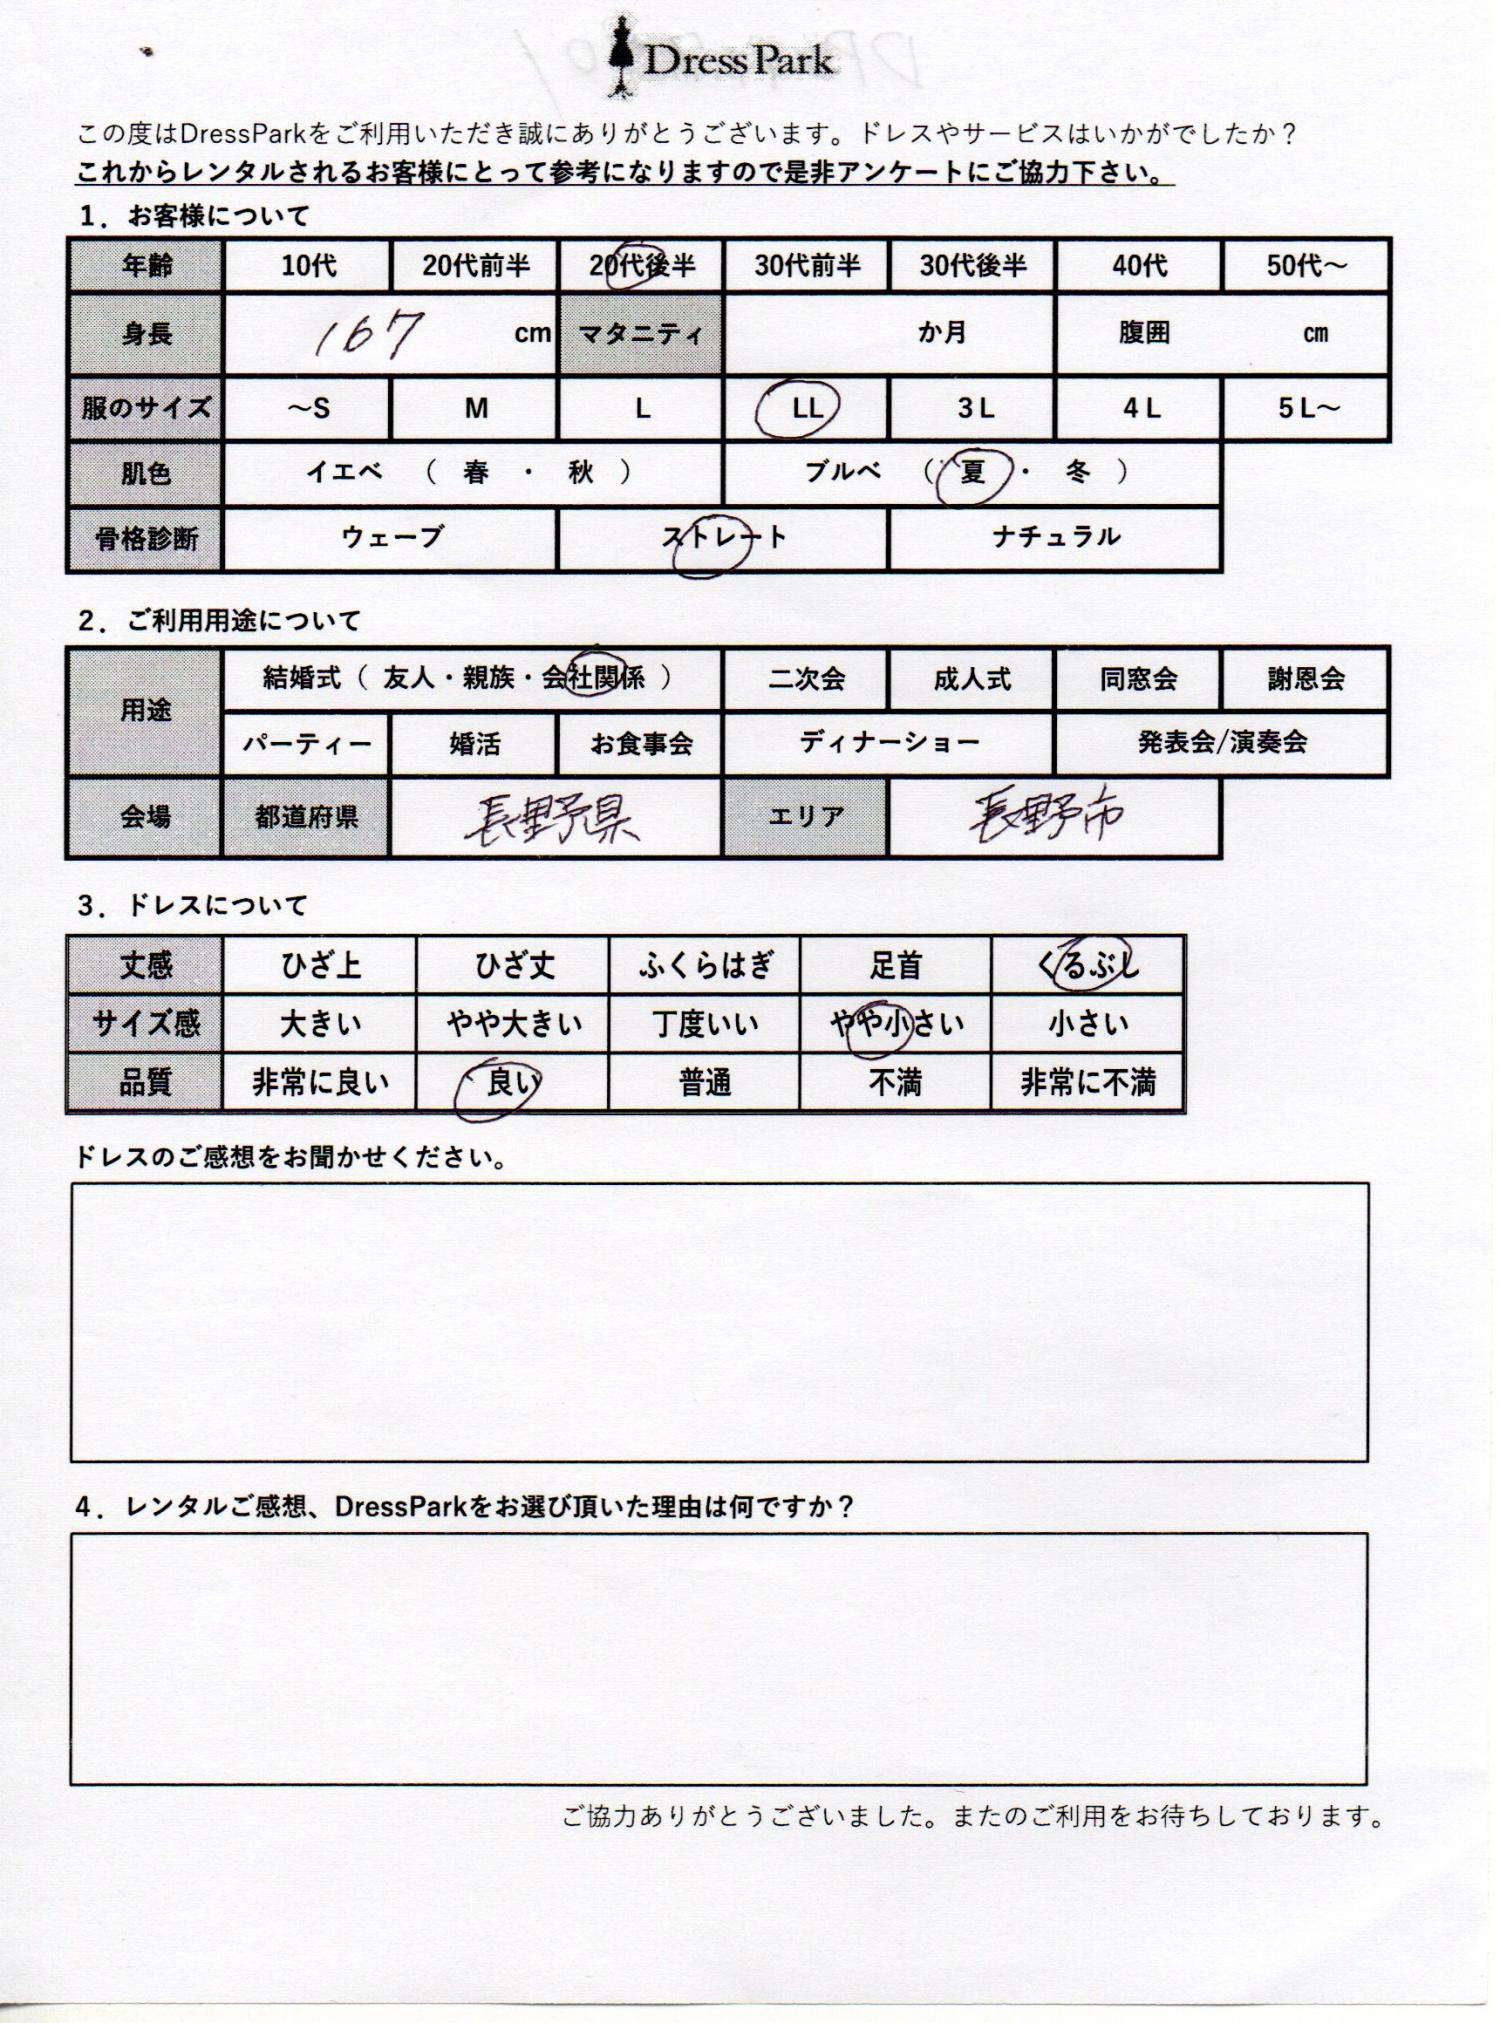 Dress Park
この度はDressParkをご利用いただき誠にありがとうございます。ドレスやサービスはいかがでしたか？
これからレンタルされるお客様にとって参考になりますので是非アンケートにご協力下さい。
1．お客様について
年齢 10代 20代前半 20代後半 30代前半 30代後半 40代 50代～
身長 167 cm マタニティ か月 腹囲 ㎝
服のサイズ ～S M L LL 3L 4L 5L～
肌色 イエベ （ 春 ・ 秋 ） ブルベ （ 夏 ・ 冬 ）
骨格診断 ウェーブ ストレート ナチュラル
2．ご利用用途について
用途 結婚式（ 友人・親族・会社関係 ） 二次会 成人式 同窓会 謝恩会
パーティー 婚活 お食事会 ディナーショー 発表会/演奏会
会場 都道府県 長野県 エリア 長野市
3．ドレスについて
丈感 ひざ上 ひざ丈 ふくらはぎ 足首 くるぶし
サイズ感 大きい やや大きい 丁度いい やや小さい 小さい
品質 非常に良い 良い 普通 不満 非常に不満
ドレスのご感想をお聞かせください。
4．レンタルご感想、DressParkをお選び頂いた理由は何ですか？
ご協力ありがとうございました。またのご利用をお待ちしております。